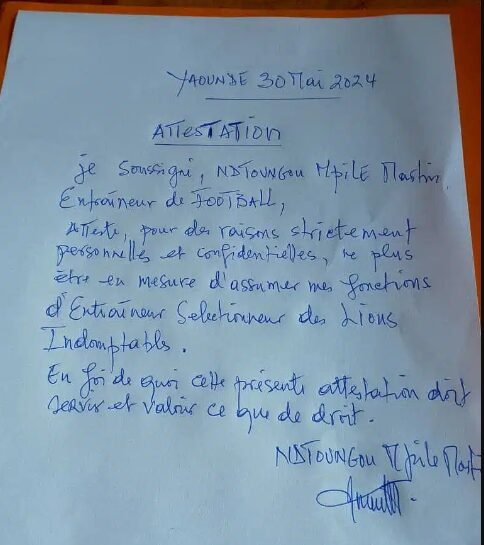 YAOUNDE 30 Mai 2024
ATTESTATION
je soussigné, NDTOUNGOU MPILE Martin
Entraîneur de FOOTBALL,
Atteste, pour des raisons strictement
personnelles et confidentielles, ne plus
être en mesure d'assumer mes fonctions
d'Entraîneur Selectionneur des Lions
Indomptables.
En foi de quoi cette présente attestation doit
servir et valoir ce que de droit.
NDTOUNGOU Mpile Mart